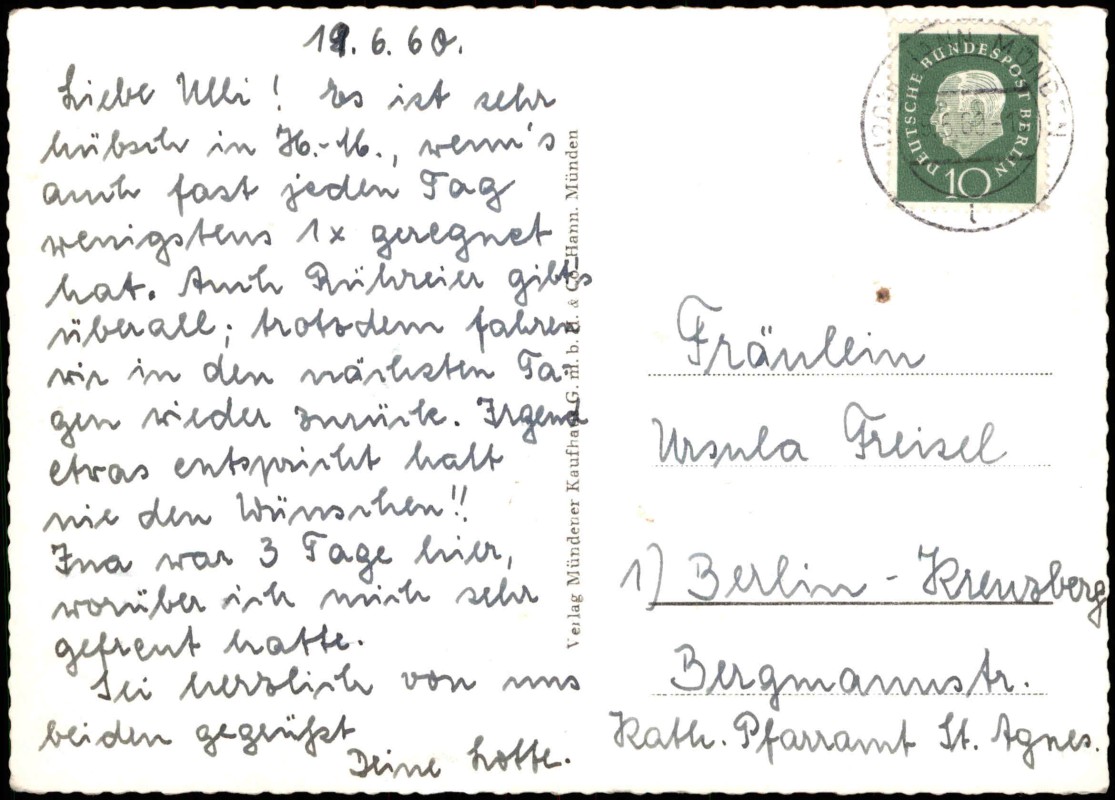 19.6.60.
Liebe Ulli! Es ist sehr
hübsch in H.-M., wenn's
auch fast jeden Tag
wenigstens 1x geregnet
hat. Auch Rühreier gibts
überall; trotzdem fahren
wir in den nächsten Ta-
gen wieder zurück. Irgend
etwas entspricht halt
nie den Wünschen!!
Ina war 3 Tage hier,
worüber ich mich sehr
gefreut hatte.
Sei herzlich von uns
beiden gegrüßt
Deine Lotte.
Verlag Mündener Kaufhaus G. m. b. H. & Co. Hann. Münden
DEUTSCHE BUNDESPOST BERLIN
10
HANN. MÜNDEN
Fräulein
Ursula Freisel
1) Berlin - Kreuzberg
Bergmannstr.
Kath. Pfarramt St. Agnes.